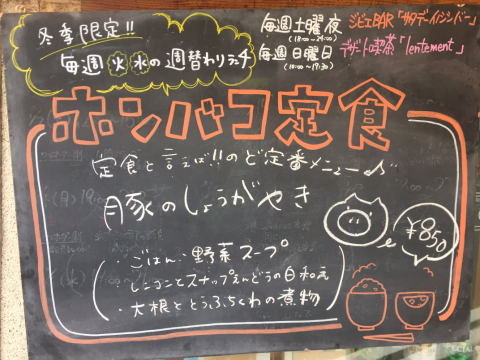 冬季限定!!
毎週火水の週替わりランチ
毎週土曜夜
(18:00〜24:00)
ジビエBAR「サタデーイノシシバー」
毎週日曜日
デザート喫茶「lentement」
ホンバコ定食
定食と言えば!!のど定番メニュー♪
豚のしょうがやき
¥850
・ごはん・野菜スープ
・レンコンとスナップえんどうの白和え
・大根ととうふちくわの煮物